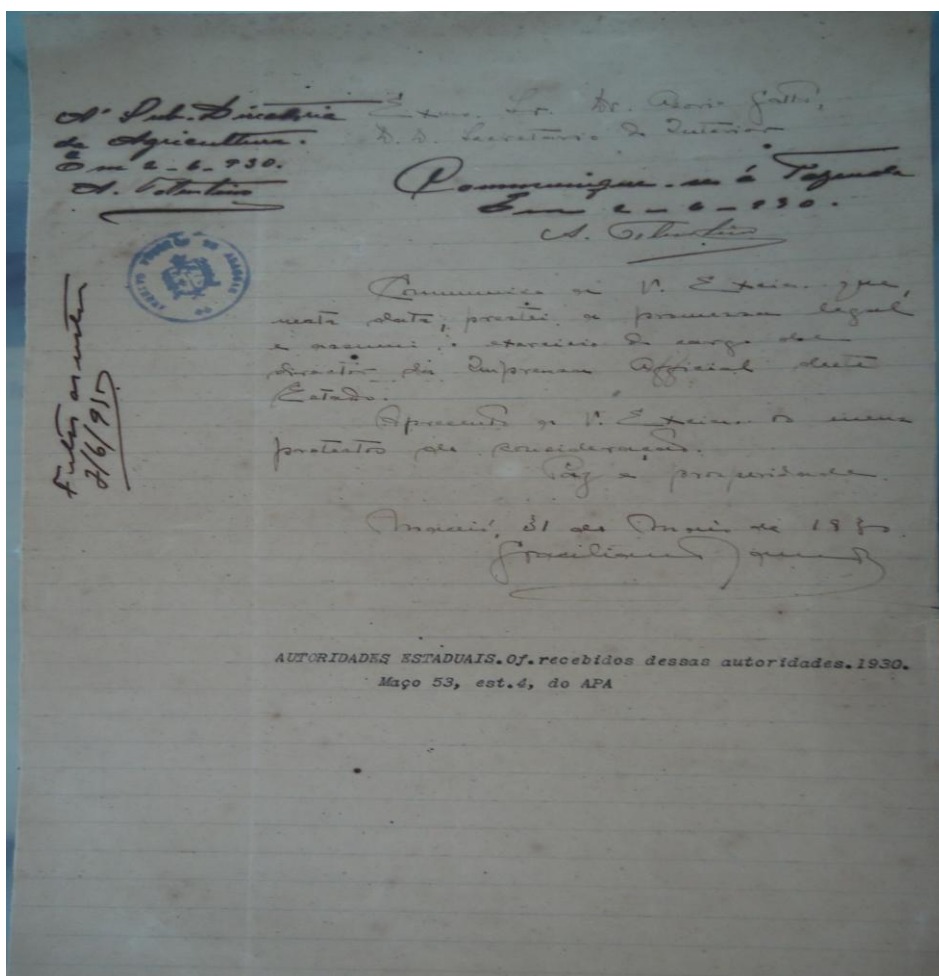 Á Sub-Directoria
de Agricultura.
Em 2-6-930.
A. Tolentino
Exmo. Sr. Dr. Osorio Gatto,
D. D. Secretario do Interior
Communique-se á Fazenda
Em 2-6-930.
A. Tolentino
Communico a V. Excia. que,
nesta data, prestei a promessa legal
e assumi o exercicio do cargo de
director da Imprensa Official deste
Estado.
Apresento a V. Excia. os meus
protestos de consideração.
Paz e prosperidade.
Maceió, 31 de Maio de 1930.
Graciliano Ramos
2/6/930
AUTORIDADES ESTADUAIS.Of.recebidos dessas autoridades.1930.
Maço 53, est.4, do APA